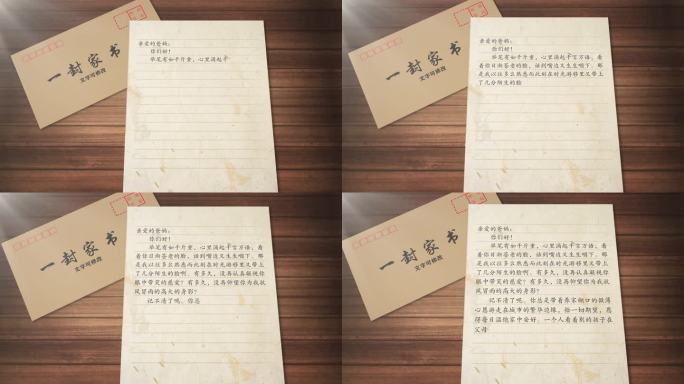 一封家书
文字可修改
亲爱的爸妈:
你们好!
举笔有如千斤重,心里涌起千
一封家书
文字可修改
亲爱的爸妈:
你们好!
举笔有如千斤重,心里涌起千言万语,看
着你日渐苍老的脸,话到嘴边又生生咽下,那
是我以往多么熟悉而此刻在时光游移里又带上
了几分陌生的脸
一封家书
文字可修改
亲爱的爸妈:
你们好!
举笔有如千斤重,心里涌起千言万语,看
着你日渐苍老的脸,话到嘴边又生生咽下,那
是我以往多么熟悉而此刻在时光游移里又带上
了几分陌生的脸啊。有多久,没再认真凝视你
眼中带笑的慈爱?有多久,没再仰望你为我挡
风冒雨的高大的身影?
记不清了呢。你总
一封家书
文字可修改
亲爱的爸妈:
你们好!
举笔有如千斤重,心里涌起千言万语,看
着你日渐苍老的脸,话到嘴边又生生咽下,那
是我以往多么熟悉而此刻在时光游移里又带上
了几分陌生的脸啊。有多久,没再认真凝视你
眼中带笑的慈爱?有多久,没再仰望你为我挡
风冒雨的高大的身影?
记不清了呢。你总是带着养家糊口的微薄
心愿游走在城市的繁华边缘,拾一切期望,愿
得每日温饱家中安好。一个人看着别的孩子在
父母